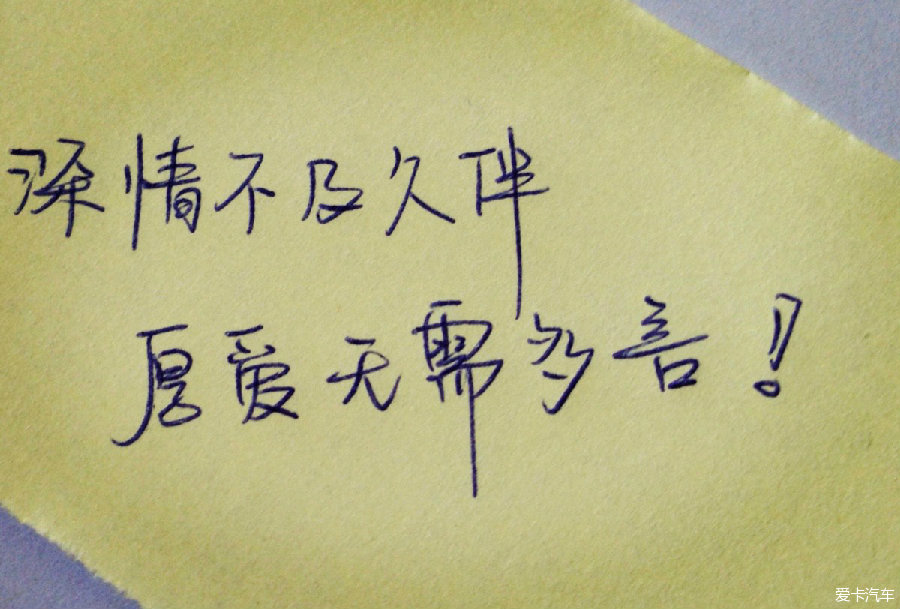 深情不及久伴
厚爱无需多言！
爱卡汽车